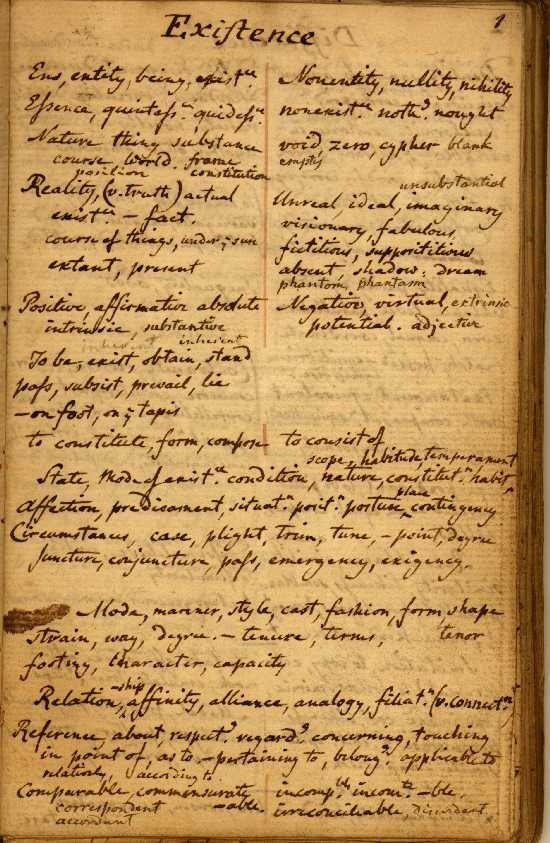 1
Existence
Ens, entity, being, existce Nonentity, nullity, nihility
Essence, quintessce, quidessce nonexistce nothg nought
Nature thing substance void, zero, cypher blank
course, world. frame empty
position constitution
Reality, (v. truth) actual unsubstantial
existce – fact. Unreal, ideal, imaginary
course of things, under ye sun visionary, fabulous,
extant, present fictitious, supposititious
absent, shadow: dream
phantom phantasm
Positive, affirmative absolute Negative, virtual, extrinsic
intrinsic, substantive potential. adjective
inherent
To be, exist, obtain, stand
pass, subsist, prevail, lie
– on foot, on ye tapis
to constitute, form, compose to consist of
scope, habitude, temperament
State, Mode of existce condition, nature, constitutn habit
Affection, predicament, situatn positn posture, contingency
place
Circumstances, case, plight, trim, tune, – point, degree
Juncture, conjuncture, pass, emergency, exigency.
Mode, manner, style, cast, fashion, form, shape
strain, way, degree. – tenure, terms, tenor
footing, character, capacity
Relation-ship, affinity, alliance, analogy, filiatn (v. connectn)
Reference about, respectg regardg concerning, touching
in point of, as to – pertaining to, belongg applicable to
relatively, according to
Comparable, commensurate incompble incomte –ble,
correspondent –able. irreconcilable, discordant
accordant